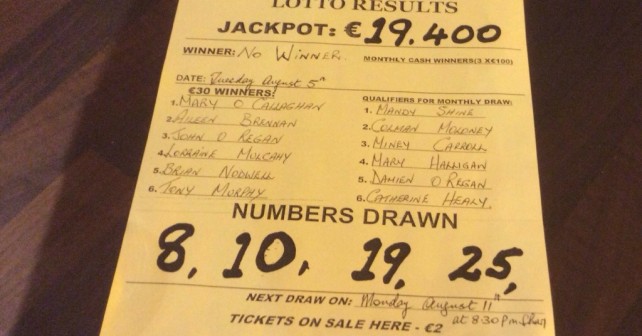 LOTTO RESULTS
JACKPOT: €19.400
WINNER: No Winner.
MONTHLY CASH WINNERS(3 X€100)
DATE: Tuesday August 5th
€30 WINNERS:
1. MARY O CALLAGHAN
2. AILEEN BRENNAN
3. JOHN O REGAN
4. LORRAINE MULCAHY
5. BRIAN NODWELL
6. TONY MURPHY
QUALIFIERS FOR MONTHLY DRAW:
1. MANDY SHINE
2. COLMAN MOLONEY
3. MINEY CARROLL
4. MARY HALLIGAN
5. DAMIEN O REGAN
6. CATHERINE HEALY.
NUMBERS DRAWN
8, 10, 19, 25,
NEXT DRAW ON: Monday August 11th
at 8.30 p.m.
TICKETS ON SALE HERE - €2